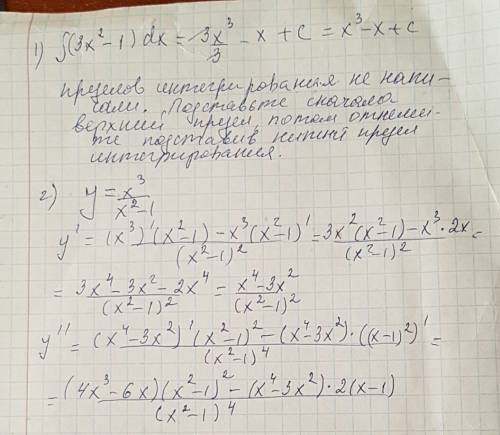 1) ∫(3x²-1) dx = 3x³/3 - x + c = x³-x+c
пределов интегрирования не напи-
сали. Подставьте сначала
верхний предел, потом отнеми-
те подставив нижний предел
интегрирования.
2) y = x³/(x²-1)
y' = ((x³)'(x²-1)-x³(x²-1)')/(x²-1)² = (3x²(x²-1)-x³·2x)/(x²-1)² =
= (3x⁴-3x²-2x⁴)/(x²-1)² = (x⁴-3x²)/(x²-1)²
y'' = ((x⁴-3x²)'(x²-1)²-(x⁴-3x²)·((x-1)²)')/(x²-1)⁴ =
= ((4x³-6x)(x²-1)²-(x⁴-3x²)·2(x-1))/(x²-1)⁴